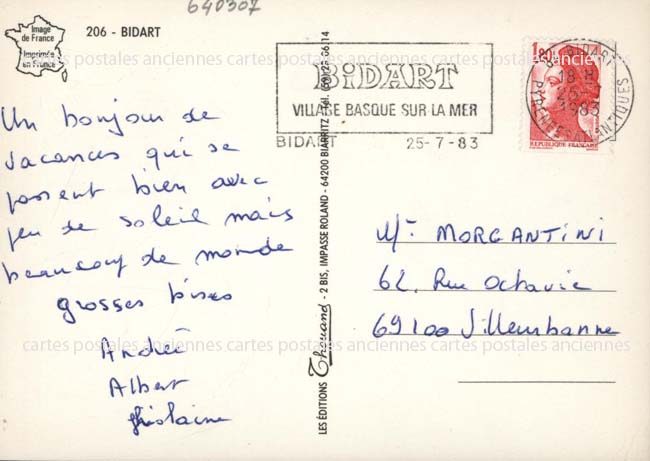 640307
Image
de France
Imprimée
en France
206 - BIDART
Un bonjour de
vacances qui se
passent bien avec
peu de soleil mais
beaucoup de monde
grosses bises
Andrée
Albert
Ghislaine
LES ÉDITIONS Thouand - 2 BIS, IMPASSE ROLAND - 64200 BIARRITZ - Tél. (59) 23.06.14
BIDART
VILLAGE BASQUE SUR LA MER
BIDART 25-7-83
1,80
REPUBLIQUE FRANÇAISE
BIDART
18 H
25-7
1983
PYRENEES ATLANTIQUES
Mr MORGANTINI
62, Rue Octavie
69100 Villeurbanne
cartes postales anciennes cartes postales anciennes cartes postales anciennes
cartes postales anciennes cartes postales anciennes cartes postales anciennes